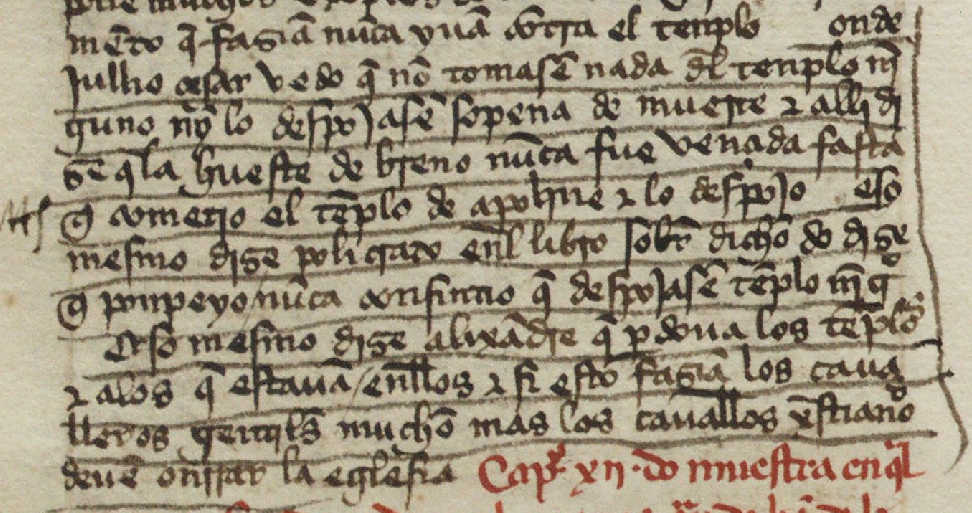 mẽto q̃ faziã nũca yuã cõtra el tenplo onde
Jullio cesar vedo q̃ nõ tomasẽ nada dl tenplo nĩ
guno nj̃ lo despojasẽ sopena de muerte ⁊ alli di
zẽ q̃ la hueste de breno nũca fue vençida fasta
q̃ cometio el tẽplo de apoline ⁊ lo despojo eso
mesmo dize policrato enl libro sobr̃ dicho do dize
q̃ ponpeyo nũca consintio q̃ despojasẽ tẽplo nĩg̊
Eso mesmo dize alixãdre q̃ pdona los tẽplos
⁊ alos q̃ estauã enllos ⁊ si esto faziã los caua
lleros gentils̃ muchõ mas los cauallos xp̃stianos
deuẽ onrrar la eglesia Capº xij do muestra enql